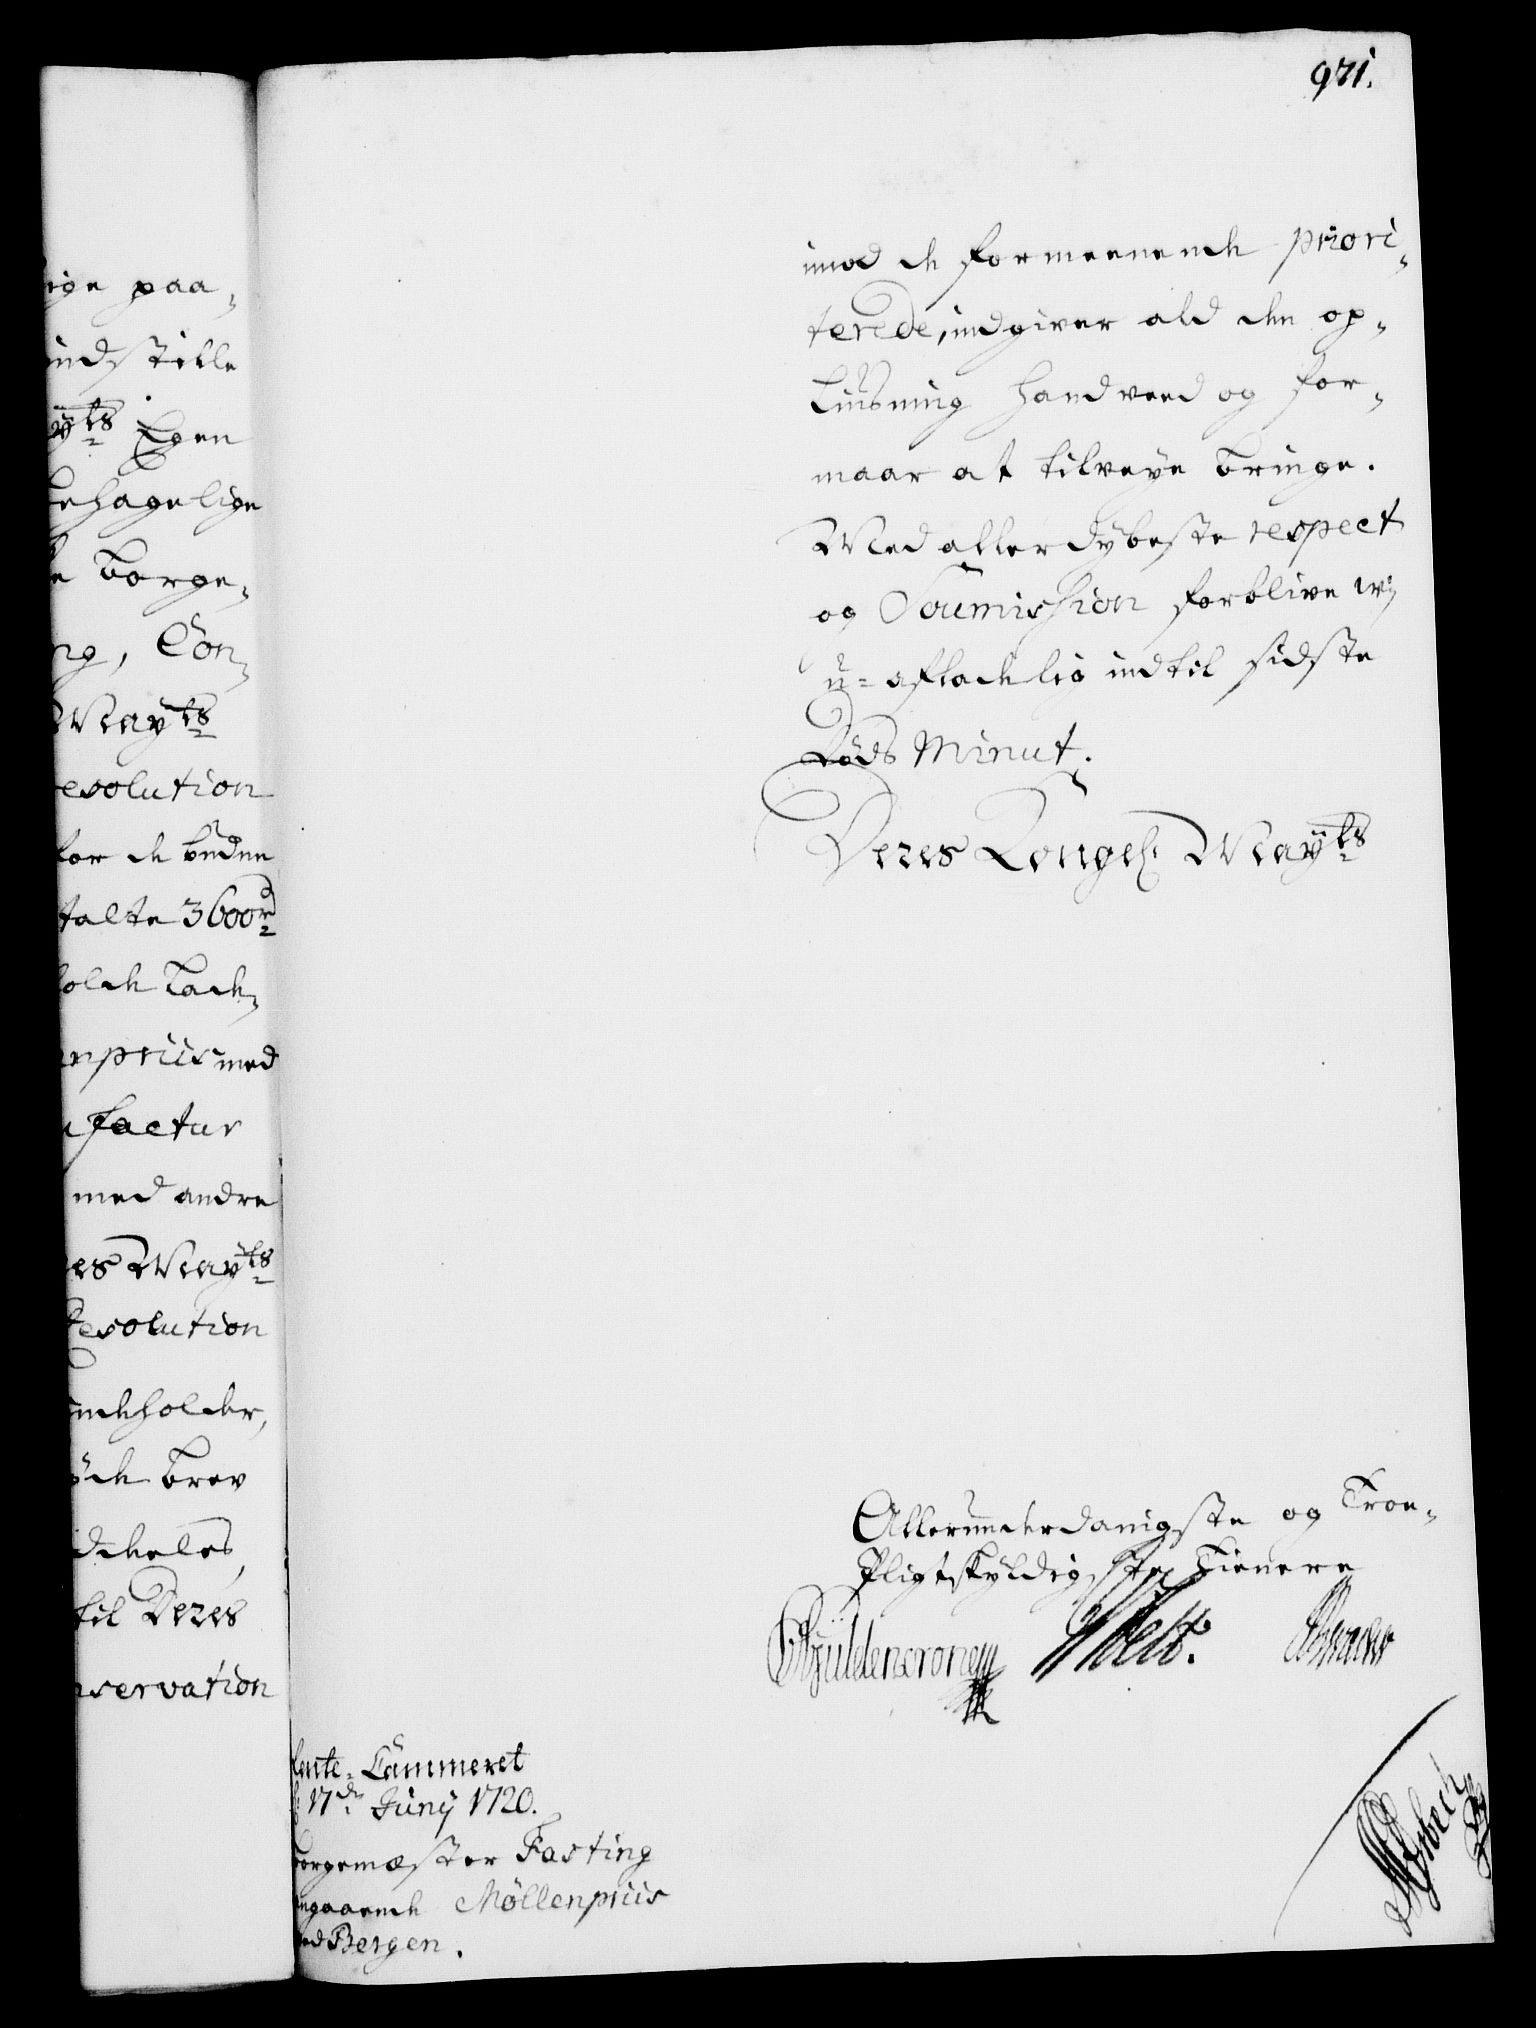 971.
ige paa-
indstille
yts Egen
behagelige
e borge-
ng, Con-
Mayts
esolution
for de buden
talte 3600rd
holde bade
enpriis med
ufactur
med andre
es Mayts
Resolution
indeholder,
öde brev
deeles,
til Deres
nservation
imod de formeenende priori-
terede, indgiver ald den op-
liusning hand veed og for-
maar at tilveye bringe.
Med allerdybeste respect
og Soumission forblive wj
u-afladelig indtil sidste
Döds Minut.
Deres Kongel. Mayts
Allerunderdanigste og Troe-
Pligtskyldigste Tienere
Gyldencrone
Rente-Cammeret
17de Junij 1720.
borgemæster Fasting
angaaende Möllenpriis
ved Bergen.